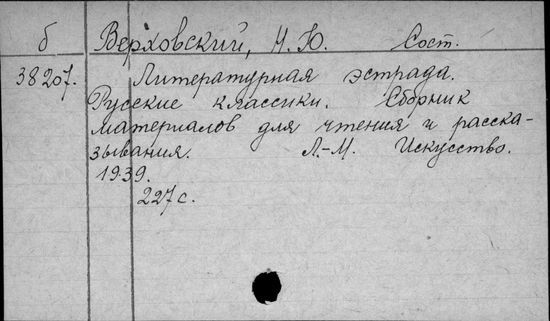 б Верховский, Н. Ю. Сост.
38207. Литературная эстрада.
Русские классики. Сборник
материалов для чтения и расска-
зывания. Л.-М. Искусство.
1939.
227 с.